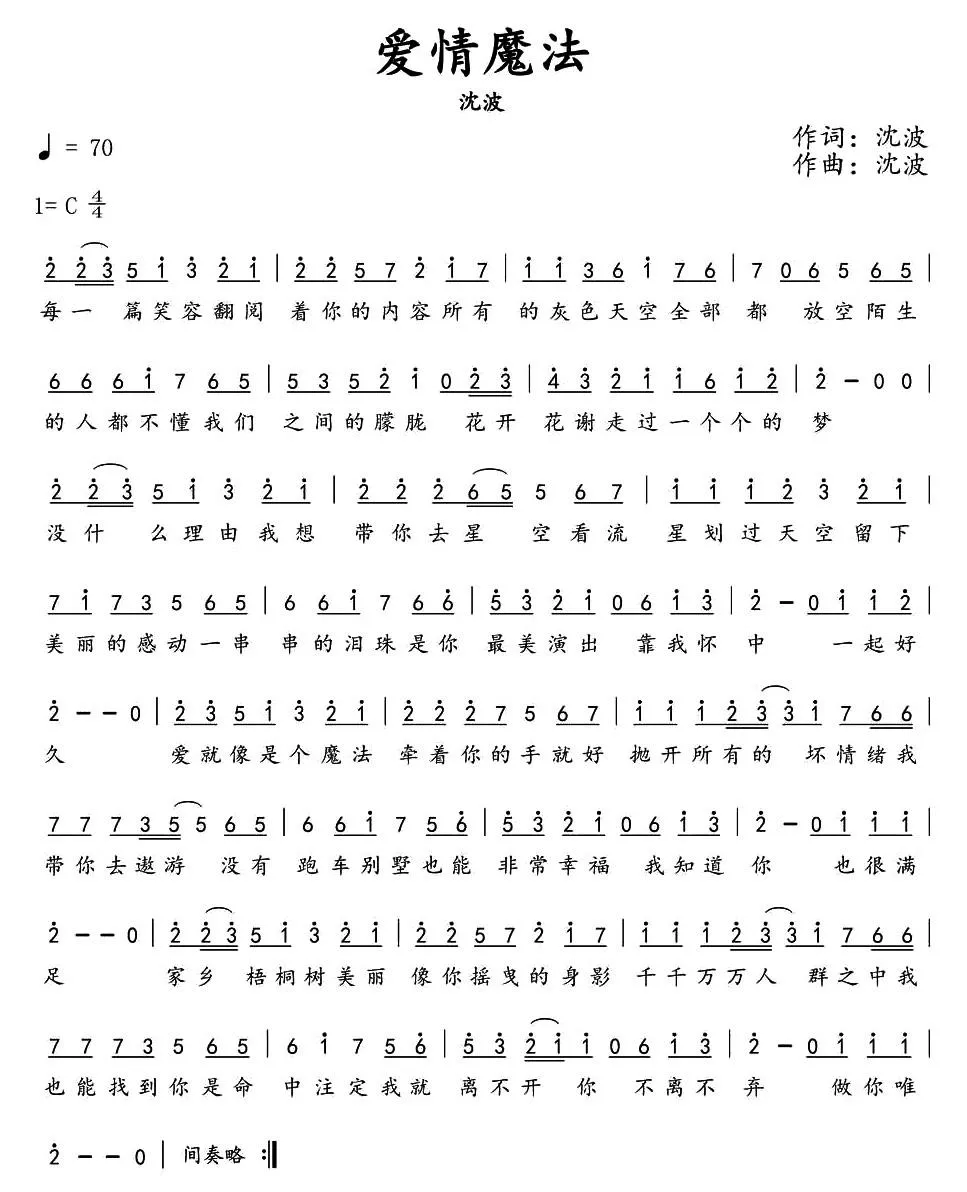 爱情魔法
沈波
♩ = 70
作词：沈波
作曲：沈波
1= C 4/4
2̇ 2̇ 3̇ 5 1̇ 3̇ 2̇ 1̇ | 2̇ 2̇ 5 7 2̇ 1̇ 7 | 1̇ 1̇ 3 6 1̇ 7 6 | 7 0 6 5 6 5 |
每一 篇笑容翻阅 着你的内容所有 的灰色天空全部 都 放空陌生
6 6 6 1̇ 7 6 5 | 5 3 5 2̇ 1̇ 0 2̇ 3̇ | 4̇ 3̇ 2̇ 1̇ 1̇ 6 1̇ 2̇ | 2̇ – 0 0 |
的人都不懂我们 之间的朦胧 花开 花谢走过一个个的 梦
2̇ 2̇ 3̇ 5 1̇ 3̇ 2̇ 1̇ | 2̇ 2̇ 2̇ 6 5 5 6 7 | 1̇ 1̇ 1̇ 2̇ 3̇ 2̇ 1̇ |
没什 么理由我想 带你去星 空看流 星划过天空留下
7 1̇ 7 3 5 6 5 | 6 6 1̇ 7 6 6̇ | 5̇ 3̇ 2̇ 1̇ 0 6 1̇ 3̇ | 2̇ – 0 1̇ 1̇ 2̇ |
美丽的感动一串 串的泪珠是你 最美演出 靠我怀 中 一起好
2̇ – – 0 | 2̇ 3̇ 5 1̇ 3̇ 2̇ 1̇ | 2̇ 2̇ 2̇ 7 5 6 7 | 1̇ 1̇ 1̇ 2̇ 3̇ 3̇ 1̇ 7 6 6 |
久 爱就像是个魔法 牵着你的手就好 抛开所有的 坏情绪我
7 7 7 3 5 5 6 5 | 6 6 1̇ 7 5 6̇ | 5̇ 3̇ 2̇ 1̇ 0 6 1̇ 3̇ | 2̇ – 0 1̇ 1̇ 1̇ |
带你去遨游 没有 跑车别墅也能 非常幸福 我知道 你 也很满
2̇ – – 0 | 2̇ 2̇ 3̇ 5 1̇ 3̇ 2̇ 1̇ | 2̇ 2̇ 5 7 2̇ 1̇ 7 | 1̇ 1̇ 1̇ 2̇ 3̇ 3̇ 1̇ 7 6 6 |
足 家乡 梧桐树美丽 像你摇曳的身影 千千万万人 群之中我
7 7 7 3 5 6 5 | 6 1̇ 7 5 6̇ | 5̇ 3̇ 2̇ 1̇ 1̇ 0 6 1̇ 3̇ | 2̇ – 0 1̇ 1̇ 1̇ |
也能找到你是命 中注定我就 离不开 你 不离不 弃 做你唯
2̇ – – 0 | 间奏略 :‖